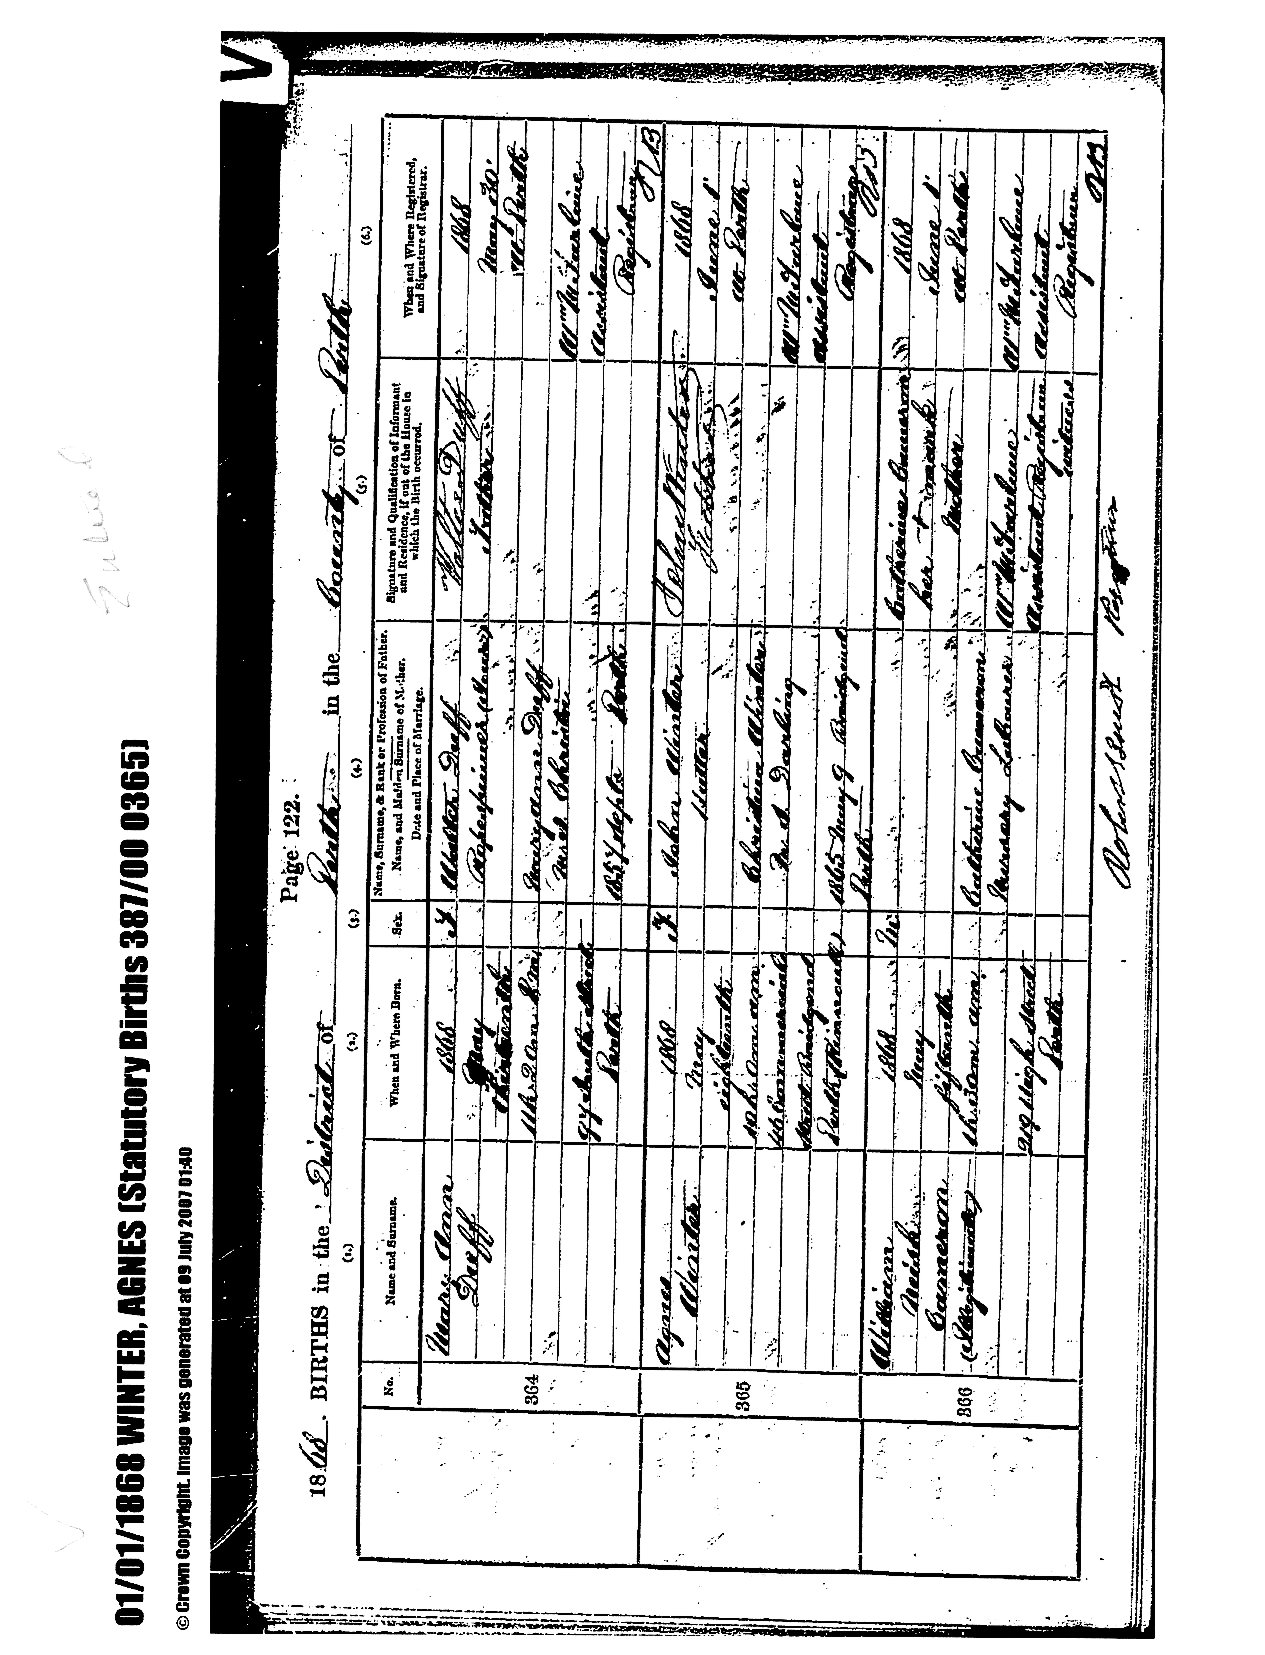 01/01/1868 WINTER, AGNES (Statutory Births 387/00 0365)
© Crown Copyright. Image was generated at 09 July 2007 01:40
Page 122.
1868. BIRTHS in the District of Perth in the County of Perth
(1.) (2.) (3.) (4.) (5.) (6.)
No.
Name and Surname.
When and Where Born.
Sex.
Name, Surname, & Rank or Profession of Father.
Name, and Maiden Surname of Mother.
Date and Place of Marriage.
Signature and Qualification of Informant
and Residence, if out of the House in
which the Birth occurred.
When and Where Registered,
and Signature of Registrar.
364
Mary Ann
Duff
1868
May
Thirteenth
11h. 20m P.m
South Street
Perth
F
Walter Duff
Mary Ann Duff
M.S. Christie
1857 Septr
Perth
Walter Duff
Father
1868
May 30
At Perth
Wm McFarlane
Assistant
Registrar
RB
365
Agnes
Winter
1868
May
eighteenth
10h. 0m a.m
Commercial
Street Bridgend
Perth (Kinnoull)
F
John Winter
Christina Winter
M.S. Darling
1865 Augt 9 Bridgend
Perth
John Winter
Father
1868
June 1
At Perth
Wm McFarlane
Assistant
Registrar
RB
366
William
Meish
Cameron
(Illegitimate)
1868
May
fifteenth
1h. 30m a.m.
219 High Street
Perth
M
Catherine Cameron
Labourer
Catherine Cameron
her + mark
Mother
Wm McFarlane
Assistant Registrar
witness
1868
June 1
At Perth
Wm McFarlane
Assistant
Registrar
RB
Robert Buist Registrar